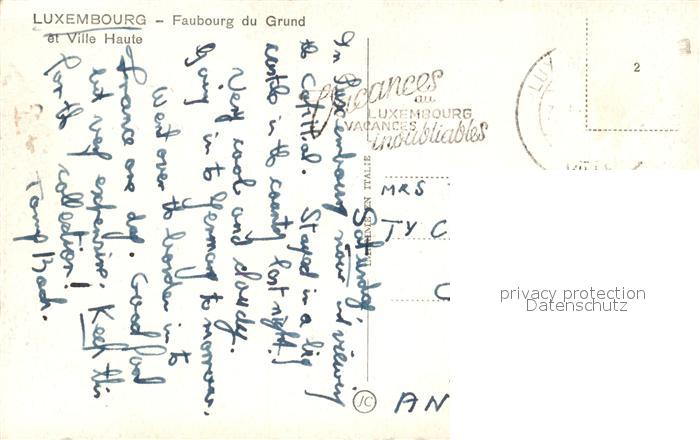 LUXEMBOURG – Faubourg du Grund
et Ville Haute
Saturday
In Luxembourg now viewing
the Capital. Stayed in a big
castle in the country last night!
Very cool and cloudy.
Going in to Germany to morrow.
Went over the border in to
France one day. Good food
but very expensive. Keep this
for the collection!
Vacances
au
LUXEMBOURG
VACANCES
inoubliables
LUX
IMPRIMÉ EN ITALIE
2
MRS
TY C
C
AN
JC
privacy protection
Datenschutz